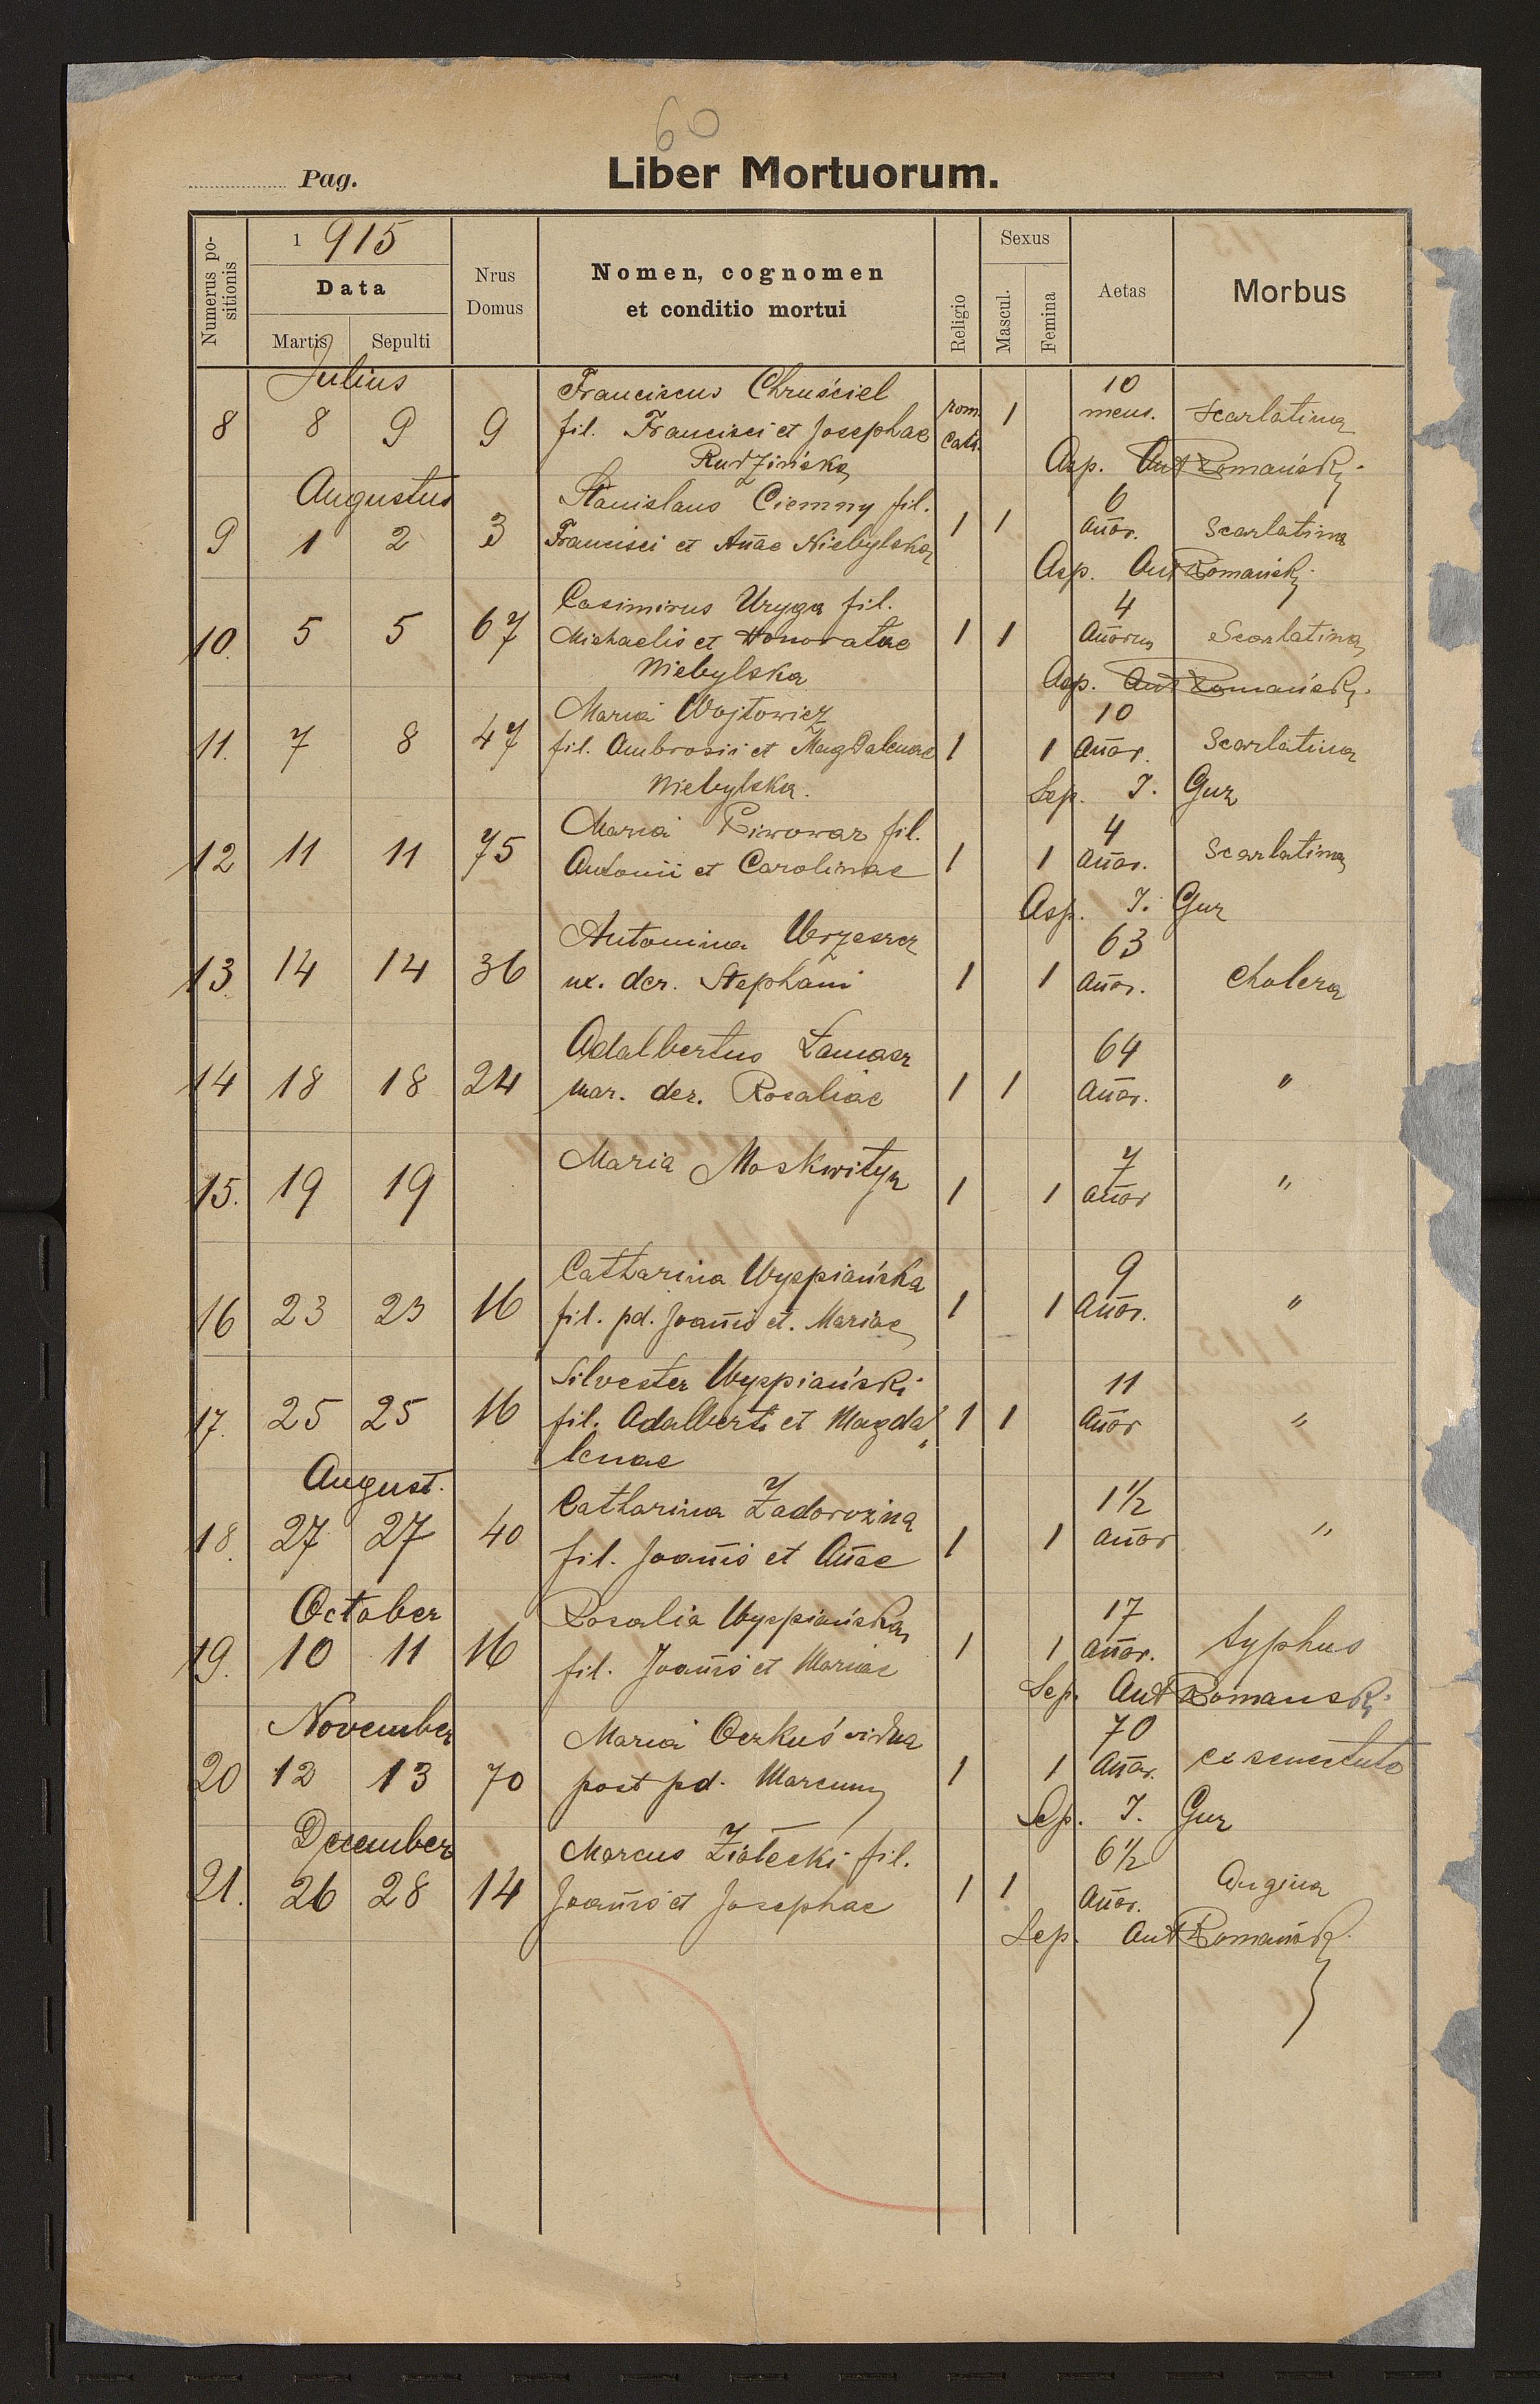 60
Pag. Liber Mortuorum.
Numerus positionis
1 915
Data
Martis Sepulti
Nrus Domus
Nomen, cognomen
et conditio mortui
Religio
Sexus
Mascul. Femina
Aetas
Morbus
Julius Franciscus Chruściel 10
8 8 9 9 fil. Francisci et Josephae rom. cath. 1 mens. Scarlatina
Rudzińska Asp. Ant Romański
Augustus Stanislaus Ciemny fil. 6
9 1 2 3 Francisci et Am̄ae Niebylska 1 1 am̄or. Scarlatina
Asp. Ant Romański
Casimirus Uryga fil. 4
10. 5 5 67 Michaelis et Honoratae 1 1 am̄orum Scarlatina
Niebylska Asp. Ant Romański
Maria Wojtowicz 10
11. 7 8 47 fil. Ambrosii et Magdalenae 1 1 am̄or. Scarlatina
Niebylska. Sep. J. Guz
Maria Piwowar fil. 4
12 11 11 75 Antonii et Carolinae 1 1 am̄or. Scarlatina
Asp. J. Guz
Antonina Wrzeszcz 63
13. 14 14 36 ux. der. Stephani 1 1 am̄or. Cholera
Adalbertus Łamasz 64
14 18 18 24 mar. der. Rosaliae 1 1 am̄or. "
Maria Moskwityn 7
15. 19 19 1 1 am̄or "
Catharina Wyspiańska 9
16 23 23 16 fil. pd. Joam̄is et. Mariae 1 1 am̄or. "
Silvester Wyspiański 11
17. 25 25 16 fil. Adalberti et Magda 1 1 am̄or "
lenae
August. Catharina Zadorozina 1½
18. 27 27 40 fil. Joam̄is et Am̄ae 1 1 am̄or "
October Rosalia Wyspiańska 17
19. 10 11 16 fil. Joam̄is et Mariae 1 1 am̄or. typhus
Sep. Ant Romański
November Maria vidua 70
20 12 13 70 post pd. Marcum 1 1 am̄or. ex senectute
Sep. J. Guz
December Marcus Ziółecki fil. 6½
21. 26 28 14 Joam̄is et Josephae 1 1 am̄or. Angina
Sep. Ant Romański